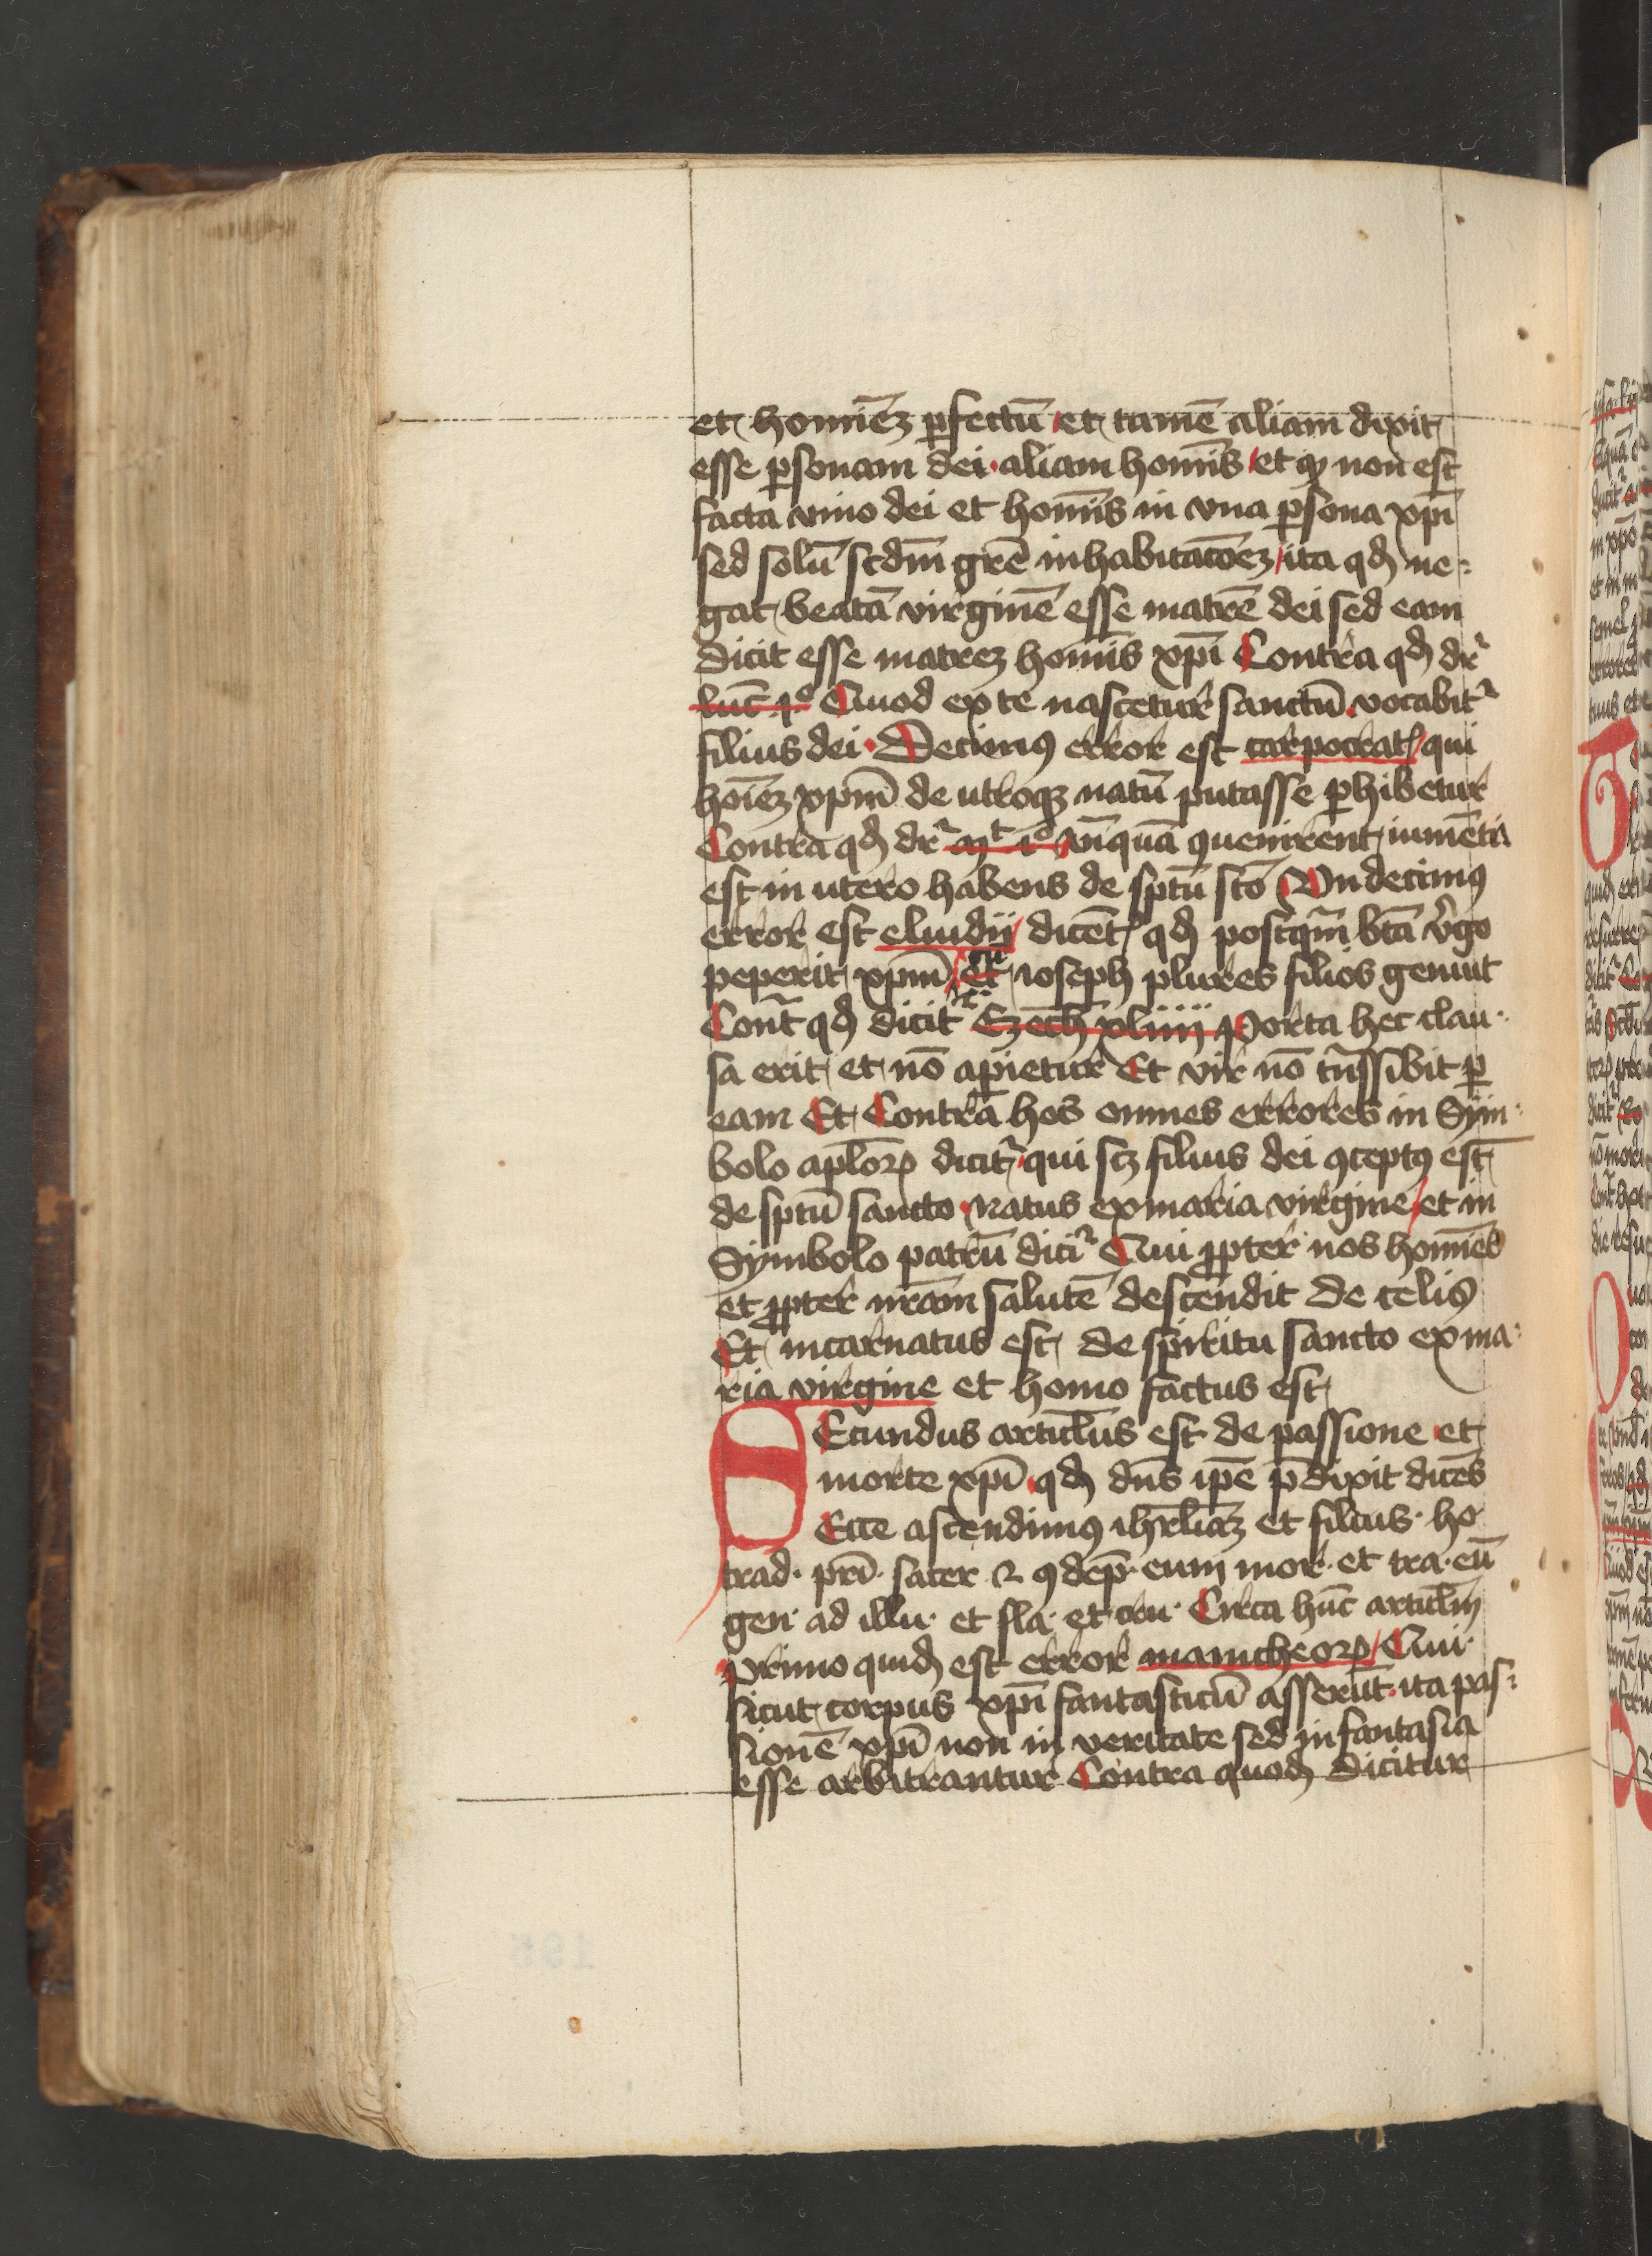 et homīeꝫ ꝑfectū et tamē aliam dixit
esse ꝑsonam dei aliam homīs et ꝙ non est
facta vnio dei et homīs in vna ꝑsona xp̄i
sed solū scdm̄ gr̄e inhabitatōeꝫ ita qd̄ ne⸗
gat beatā virginē esse matrē dei sed eam
dicit esse matreꝫ homīs xp̄i Contra qd̄ dr̄
luc̄ pº Quod ex te nascetur sanctū vocabitᷣ
filius dei Decimꝯ error est carpocratꝭ qui
hoīeꝫ xpm̄ de utroqꝫ natū putasse ꝑhibetur
Contra qd̄ dr̄ mᵗ iº Anͥquā ꝯuenirent inuēta
est in utero habens de sp̄tū sc̄o Vndecimꝯ
error est eluidij dicētꝭ qd̄ postqͣm bt̄a v̓go
peperit xpm̄ et ioseph plures filios genuit
Contͣ qd̄ dicitᷣ Ezech̄ xliiij Porta hec clau⸗
sa erit et nō apietur Et vir nō tn̄ssibit ꝑ
eam Et Contra hos omnes errores in Sym⸗
bolo apl̄oꝝ dicitᷣ qui scꝫ filius dei ꝯceptꝯ est
de sp̄tū sancto natus ex maria virgine et in
Symbolo patrū diciᷣ Qui ꝓpter nos homīes
et ꝓpter nr̄am salutē descendit de celis
Et incarnatus est de spiritu sancto ex ma⸗
ria virgine et homo factus est
SEcundus articl̄us est de passione et
morte xp̄i qd̄ dn̄s ip̄e p̄dixit dicēs
Ecce ascendimꝯ ihr̄l̄iaꝫ et filius · ho·
trad· pri̅· sacer ⁊ ꝯdep̄· eum mor· et tra· eū
gen· ad illu· et fla· et cru· Circa hūc articl̄m
Primo quid̄ est error manicheoꝝ Qui
sicut corpus xp̄i fantasticū asserūt ita pas⸗
sionē xp̄i non in veritate sed in fantasia
esse arbitrantur Contra quod̄ dicitur